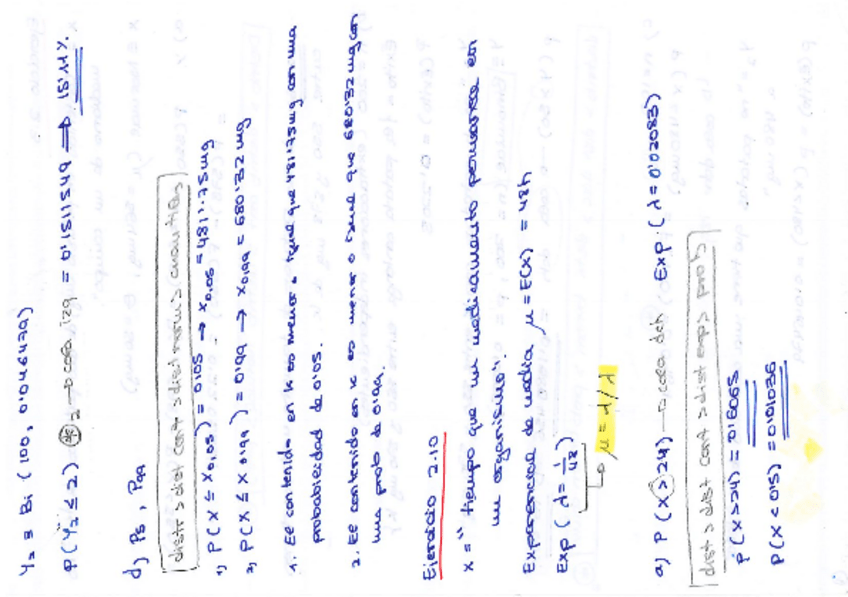 Y₂ ≡ Bi (100, 0'046479)
P(Y₂ ≤ 2) → cola izq = 0'1511549 → 15'11%
d) P₅, P₉₉
distr > dist cont > dist normal > cuantiles
1) P(X ≤ x₀,₀₅) = 0'05 → x₀,₀₅ = 481'75mg
2) P(X ≤ x₀,₉₉) = 0'99 → x₀,₉₉ = 680'32 mg
1. El contenido en k es menor o igual que 481'75mg con una
probabilidad de 0'05.
2. El contenido en k es menor o igual que 680'32 mg con
una prob de 0'99.
Ejercicio 2.10
X = "tiempo que un medicamento permanece en
un organismo".
Exponencial de media μ = E(X) = 48h
Exp (λ = 1/48)
↳ μ = 1/λ
a) P(X > 24) → cola dch Exp. (λ = 0'02083)
dist > dist cont > dist exp > prob
P(X > 24) = 0'6065
P(X < 0'5) = 0'01036